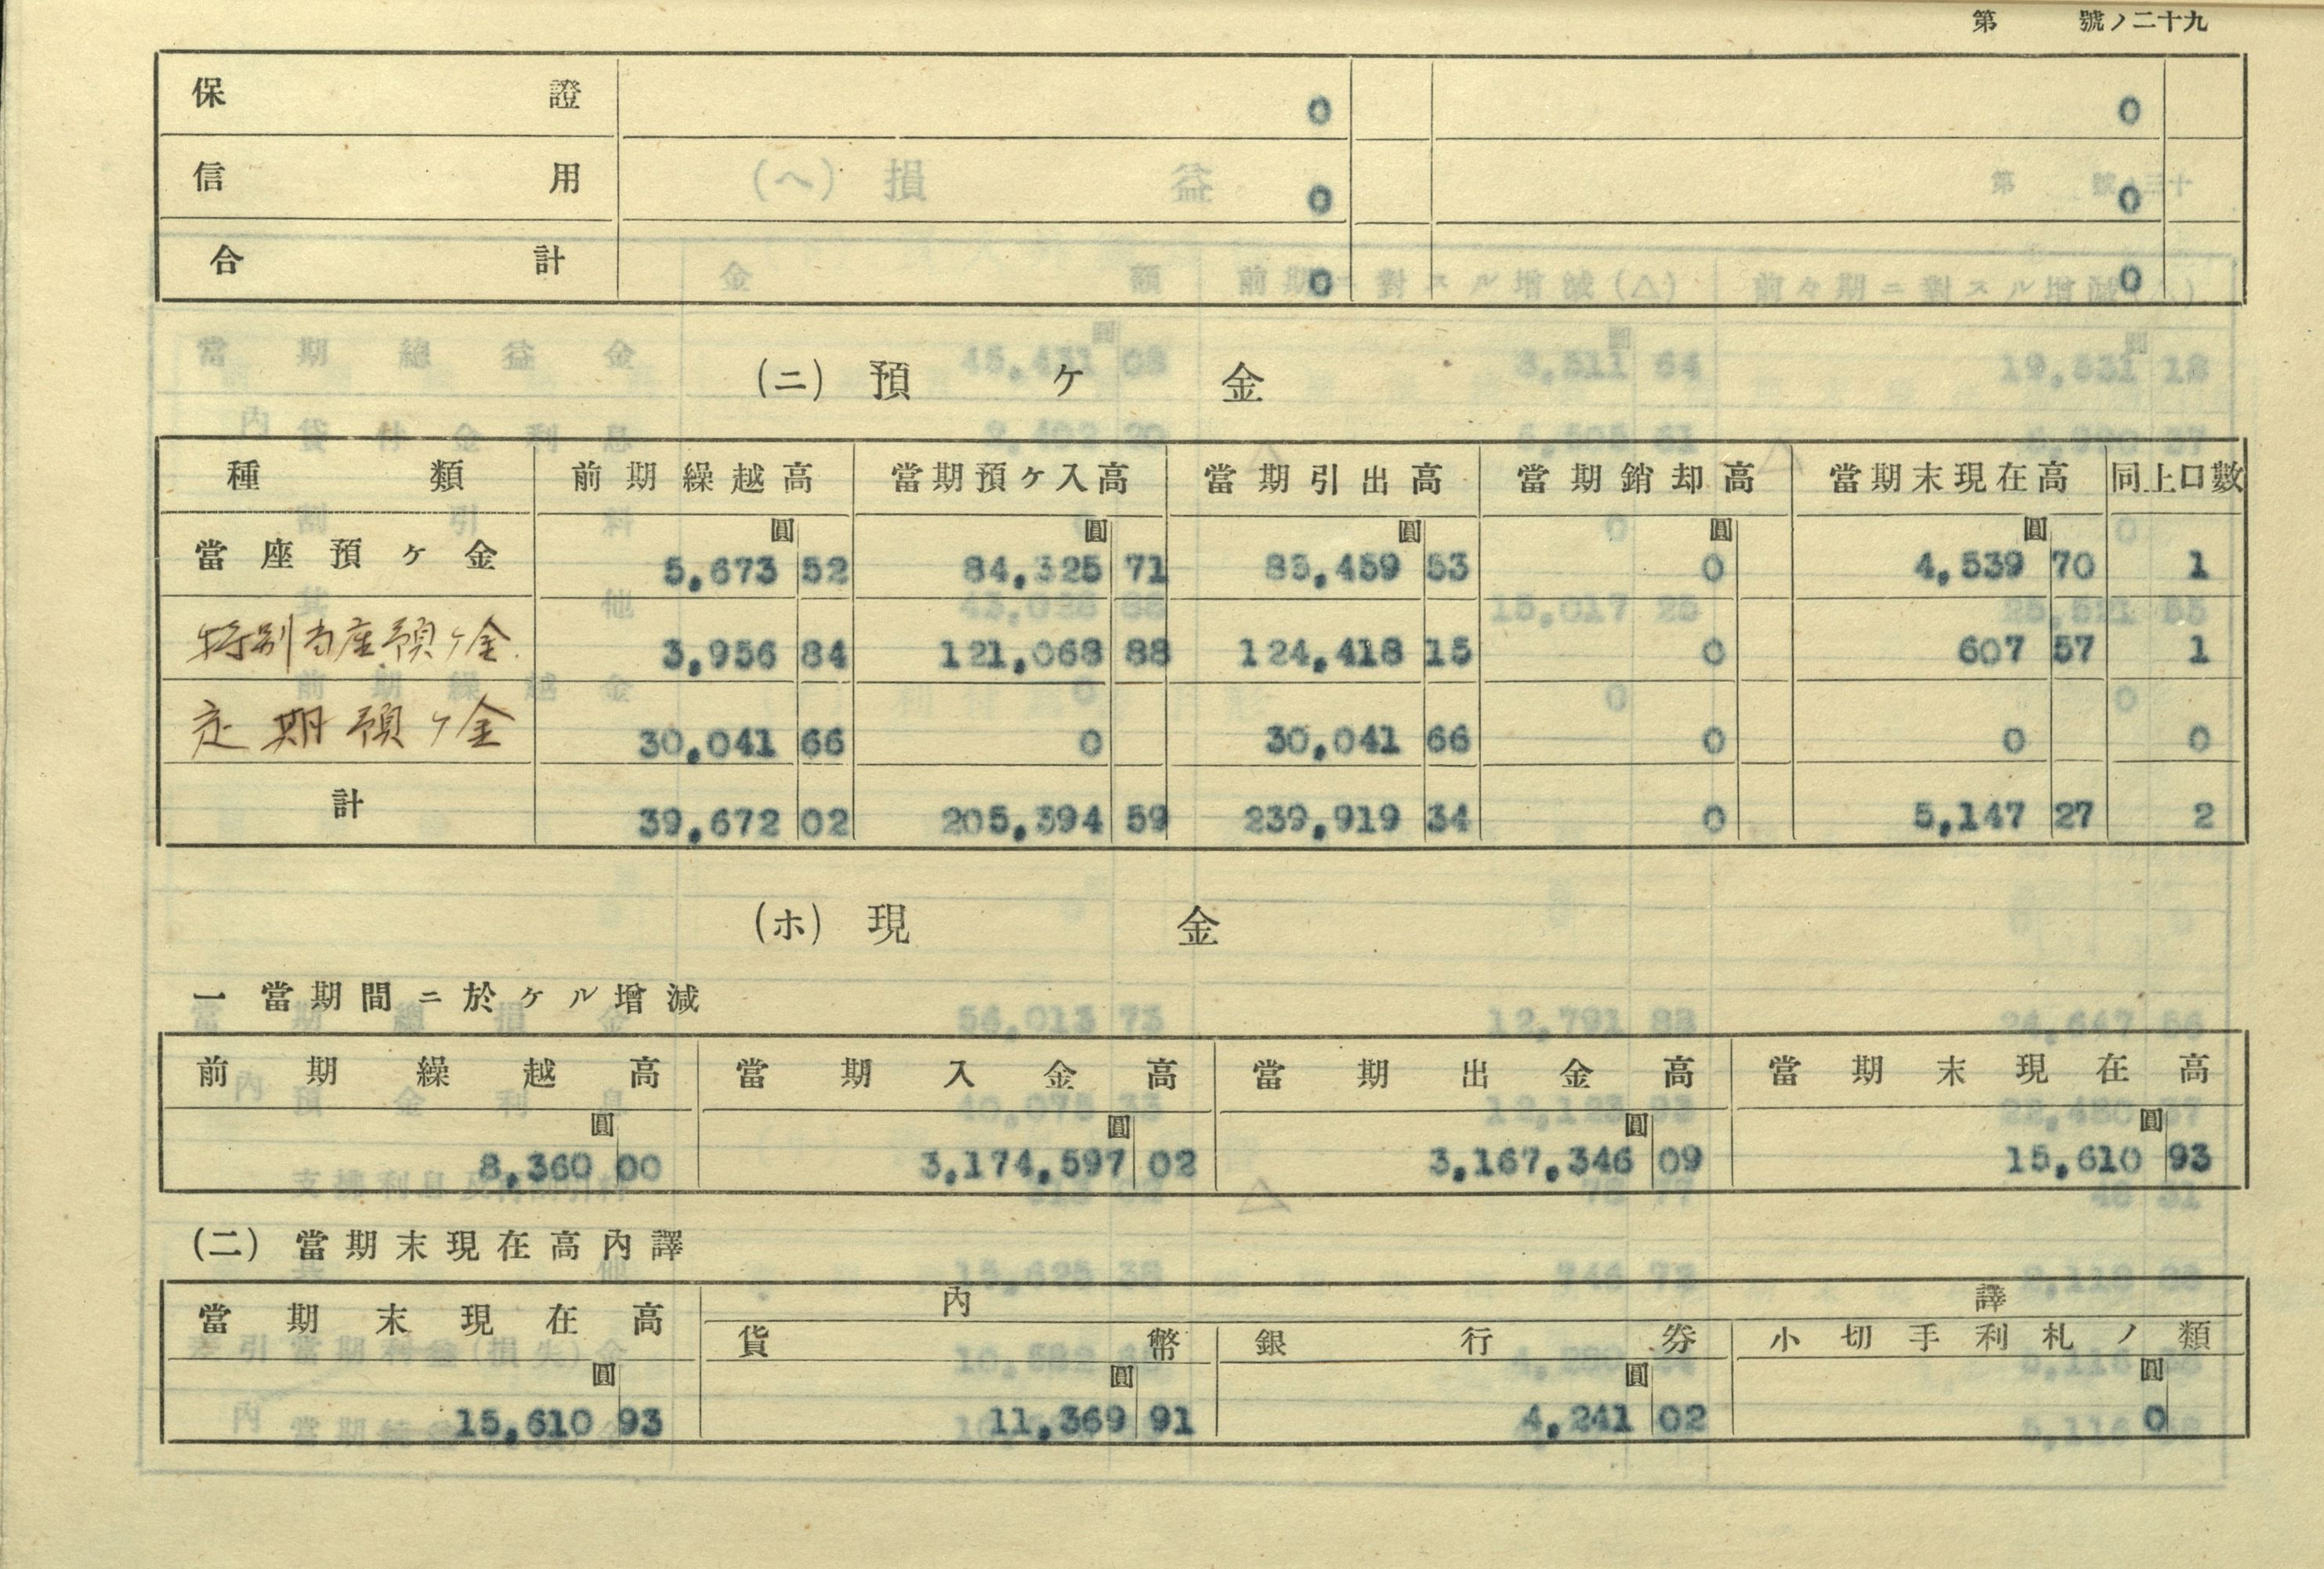 第 號ノ二十九
保證 0 0
信用 0 0
合計 0 0
(ニ) 預ケ金
種類 前期繰越高 當期預ケ入高 當期引出高 當期銷却高 當期末現在高 同上口數
圓 圓 圓 圓 圓
當座預ケ金 5,673 52 84,325 71 85,459 53 0 4,539 70 1
特別当座預ケ金 3,956 84 121,068 88 124,418 15 0 607 57 1
定期預ケ金 30,041 66 0 30,041 66 0 0 0
計 39,672 02 205,394 59 239,919 34 0 5,147 27 2
(ホ) 現金
一 當期間ニ於ケル增減
前期繰越高 當期入金高 當期出金高 當期末現在高
圓 圓 圓 圓
8,360 00 3,174,597 02 3,167,346 09 15,610 93
(二) 當期末現在高內譯
當期末現在高 內譯
貨幣 銀行券 小切手利札ノ類
圓 圓 圓 圓
15,610 93 11,369 91 4,241 02 0